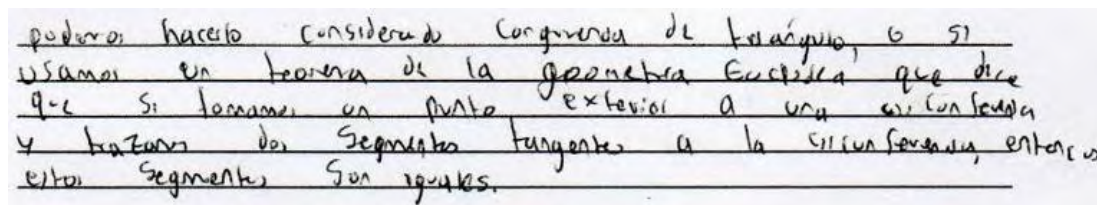 podemos hacerlo considerando congruencia de triángulo, o si
usamos un teorema de la geometria Euclidea que dice
que si tomamos un punto exterior a una circunferencia
y trazamos dos segmentos tangentes a la circunferencia, entonces
estos segmentos son iguales.